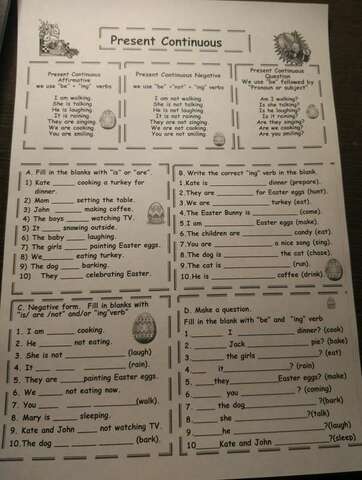 Present Continuous
Present Continuous
Affirmative
we use "be" + "ing" verbs
I am walking.
She is talking.
He is laughing
It is raining
They are singing
We are cooking
You are smiling.
Present Continuous Negative
we use "be" +"not" + "ing" verbs
I am not walking.
She is not talking
He is not laughing
It is not raining
They are not singing
We are not cooking
You are not smiling.
Present Continuous
Question
We use "be" followed by
Pronoun or subject"
Am I walking?
Is she talking?
Is he laughing?
Is it raining?
Are they singing?
Are we cooking?
Are you smiling?
A. Fill in the blanks with "is" or "are".
1) Kate _____ cooking a turkey for
dinner.
2) Mom _____ setting the table.
3) John _____ making coffee.
4) The boys _____ watching TV.
5) It _____ snowing outside.
6) The baby _____ laughing.
7) The girls _____ painting Easter eggs.
8) We _____ eating turkey.
9) The dog _____ barking.
10) They _____ celebrating Easter.
B. Write the correct "ing" verb in the blank.
1.Kate is _____ dinner (prepare).
2.They are _____ for Easter eggs (hunt).
3.We are _____ turkey (eat).
4.The Easter Bunny is _____ (come).
5.I am _____ Easter eggs (make).
6.The children are _____ candy (eat)
7.You are _____ a nice song (sing).
8.The dog is _____ the cat (chase).
9.The cat is _____ (run).
10.He is _____ coffee (drink)
C. Negative form. Fill in blanks with
"is/ are /not" and/or "ing"verb"
1. I am _____ cooking.
2. He _____ not eating.
3. She is not _____ (laugh)
4. It _____ (rain).
5. They are _____ painting Easter eggs.
6. We _____ not eating now.
7. You _____ (walk).
8. Mary is _____ sleeping.
9. Kate and John _____ not watching TV.
10. The dog _____ (bark).
D. Make a question.
Fill in the blank with "be" and "ing" verb
1._____ I _____ dinner? (cook)
2. _____ Jack _____ pie? (bake)
3._____ the girls _____? (eat)
4._____ it _____? (rain)
5._____they_____ Easter eggs? (make)
6._____ you _____ ? (coming)
7._____ the dog_____?(bark)
8._____ she _____?(talk)
9._____he _____?(laugh)
10._____Kate and John _____?(sleep)